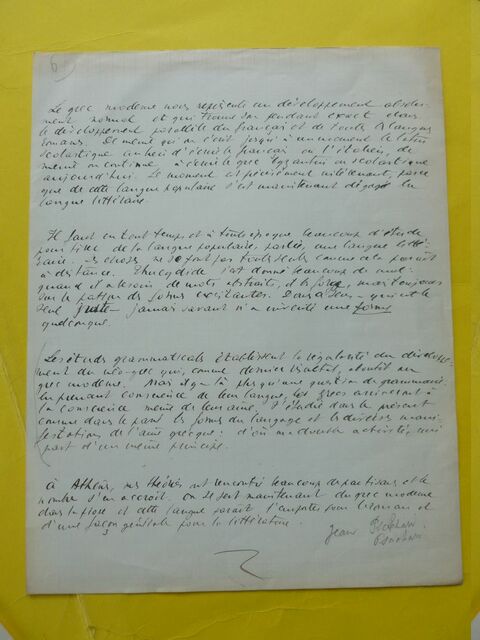 6
Le grec moderne nous représente un développement absolu-
ment normal et qui trouve son pendant exact dans
le développement parallèle du français et de toutes les langues
romanes. De même qu'on s'est jusqu'à un moment le latin
scolastique au lieu d'écrire le français ou l'italien, de
même on continue à écrire le grec byzantin ou scolastique
aujourd'hui. Le moment est précisément intéressant, parce
que de cette langue populaire s'est maintenant dégagée la
langue littéraire.
Il faut en tout temps et à toute époque beaucoup d'étude
pour tirer de la langue populaire, parlée, une langue litté-
raire. Les choses ne se font pas toutes seules comme cela paraît
à distance. Thucydide s'est donné beaucoup de mal
quand il a besoin de mots abstraits, il les forge, mais toujours
sur le patron des formes existantes. Dans
seul juste jamais savant n'a inventé une forme
quelconque.
Les études grammaticales établissent la régularité du développe-
ment du néo-grec qui, comme dernier résultat, aboutit au
grec moderne. Mais il y a là plus qu'une question de grammaire.
En prenant conscience de leur langue, les Grecs arriveront à
la conscience même de leur âme. J'étudie dans le présent
comme dans le passé les formes du langage et les diverses mani-
festations de l'âme grecque : d'où ma double activité, qui
part d'un même principe.
À Athènes, mes théories ont rencontré beaucoup de partisans et le
nombre s'en accroît. On se sert maintenant du grec moderne
dans la prose et cette langue paraît l'emporter pour le roman et
d'une façon générale pour la littérature.
Jean Psichari
Psichari